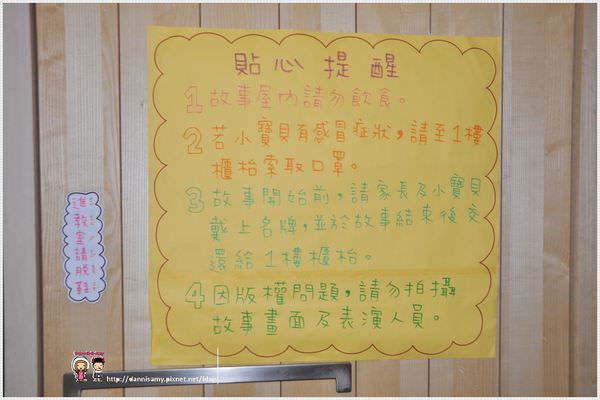 貼心提醒
1 故事屋內請勿飲食。
2 若小寶貝有感冒症狀,請至1樓
櫃枱索取口罩。
3 故事開始前,請家長及小寶貝
戴上名牌,並於故事結束後交
還給1樓櫃枱。
4 因版權問題,請勿拍攝
故事畫面及表演人員。
進教室請脫鞋
http://dannisamy.pixnet.net/blog